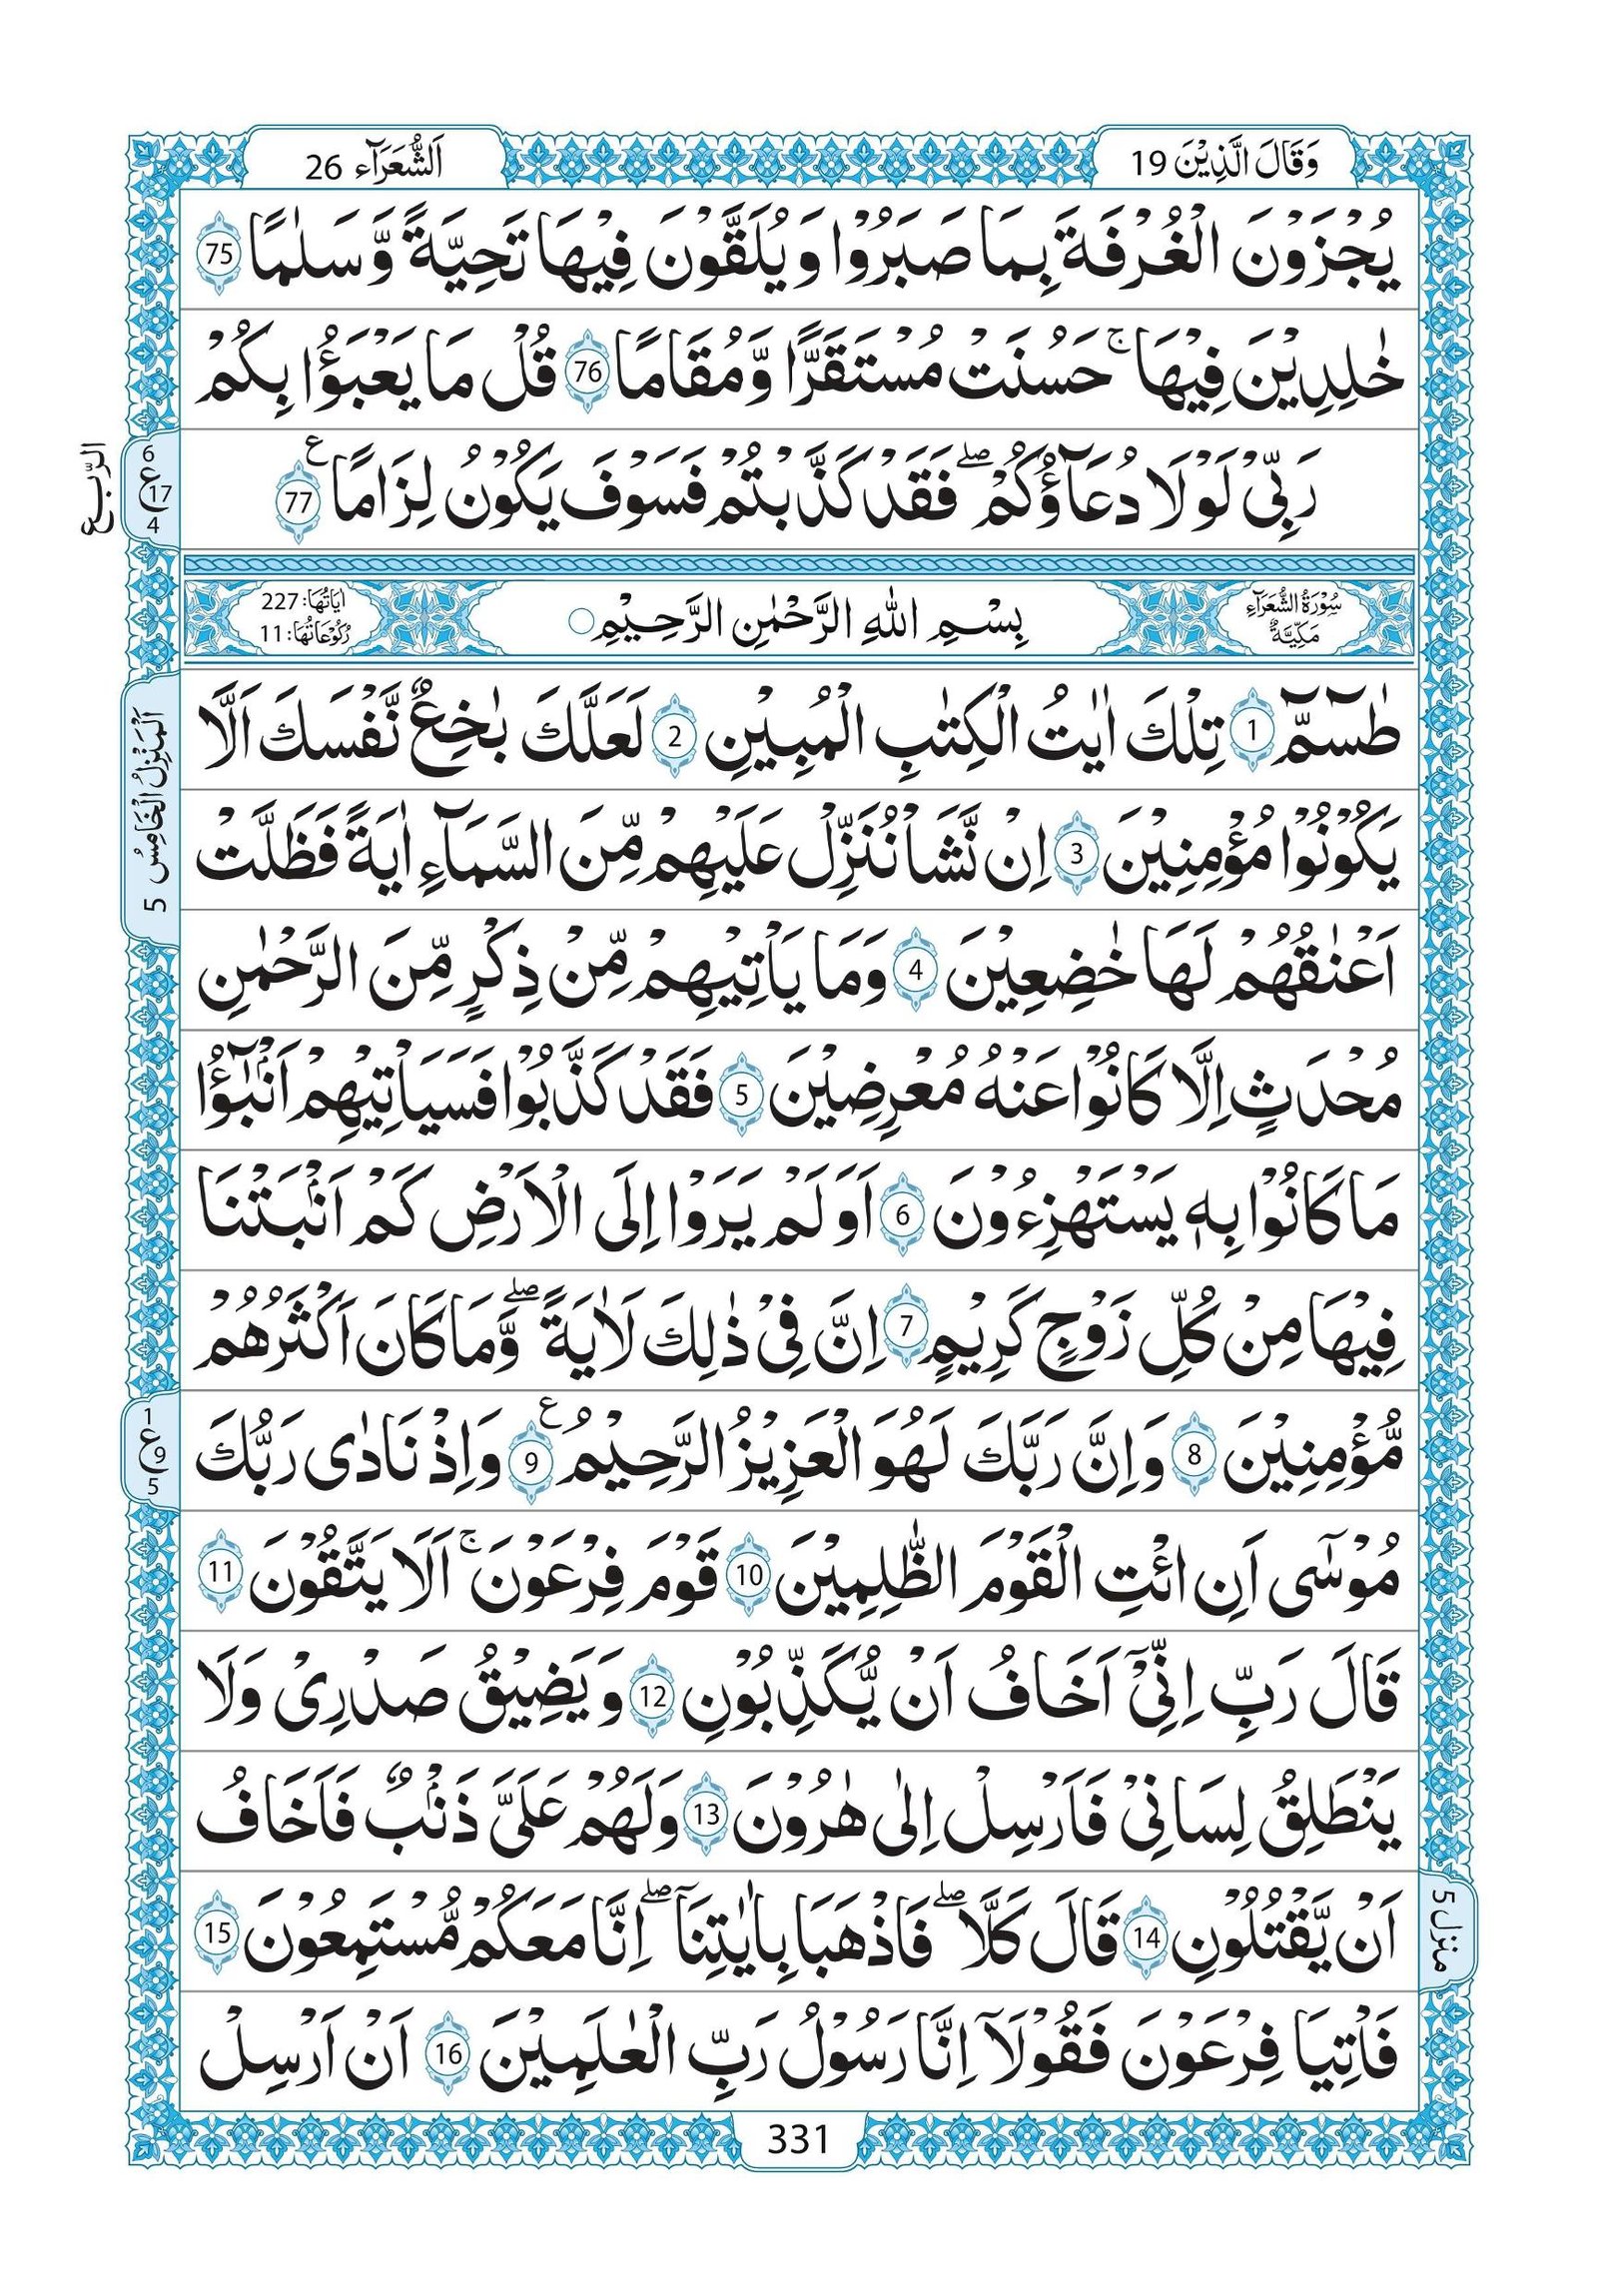 وَقَالَ الَّذِيْنَ 19
اَلشُّعَرَآء 26
يُجْزَوْنَ الْغُرْفَةَ بِمَا صَبَرُوْا وَ يُلَقَّوْنَ فِيْهَا تَحِيَّةً وَّ سَلٰمًا 75
خٰلِدِيْنَ فِيْهَا ۚ حَسُنَتْ مُسْتَقَرًّا وَّ مُقَامًا 76 قُلْ مَا يَعْبَؤُا بِكُمْ
رَبِّيْ لَوْ لَا دُعَآؤُكُمْ ۖ فَقَدْ كَذَّبْتُمْ فَسَوْفَ يَكُوْنُ لِزَامًا ع 77
6
ع 17
4
الرّبع
سُوْرَةُ الشُّعَرَآءِ
مَكِّيَّةٌ
بِسْمِ اللهِ الرَّحْمٰنِ الرَّحِيْمِ
اٰيَاتُهَا: 227
رُكُوْعَاتُهَا: 11
طٰسٓمّٓ 1 تِلْكَ اٰيٰتُ الْكِتٰبِ الْمُبِيْنِ 2 لَعَلَّكَ بٰخِعٌ نَّفْسَكَ اَلَّا
يَكُوْنُوْا مُؤْمِنِيْنَ 3 اِنْ نَّشَاْ نُنَزِّلْ عَلَيْهِمْ مِّنَ السَّمَآءِ اٰيَةً فَظَلَّتْ
اَعْنٰقُهُمْ لَهَا خٰضِعِيْنَ 4 وَمَا يَاْتِيْهِمْ مِّنْ ذِكْرٍ مِّنَ الرَّحْمٰنِ
مُحْدَثٍ اِلَّا كَانُوْا عَنْهُ مُعْرِضِيْنَ 5 فَقَدْ كَذَّبُوْا فَسَيَاْتِيْهِمْ اَنْۢبٰٓؤُا
مَا كَانُوْا بِهٖ يَسْتَهْزِءُوْنَ 6 اَوَ لَمْ يَرَوْا اِلَى الْاَرْضِ كَمْ اَنْۢبَتْنَا
فِيْهَا مِنْ كُلِّ زَوْجٍ كَرِيْمٍ 7 اِنَّ فِيْ ذٰلِكَ لَاٰيَةً ۖ وَّمَا كَانَ اَكْثَرُهُمْ
مُّؤْمِنِيْنَ 8 وَاِنَّ رَبَّكَ لَهُوَ الْعَزِيْزُ الرَّحِيْمُ ع 9 وَاِذْ نَادٰى رَبُّكَ
1
ع 9
5
مُوْسٰٓى اَنِ ائْتِ الْقَوْمَ الظّٰلِمِيْنَ 10 قَوْمَ فِرْعَوْنَ ۚ اَلَا يَتَّقُوْنَ 11
قَالَ رَبِّ اِنِّيْٓ اَخَافُ اَنْ يُّكَذِّبُوْنِ 12 وَ يَضِيْقُ صَدْرِيْ وَلَا
يَنْطَلِقُ لِسَانِيْ فَاَرْسِلْ اِلٰى هٰرُوْنَ 13 وَلَهُمْ عَلَيَّ ذَنْۢبٌ فَاَخَافُ
اَنْ يَّقْتُلُوْنِ 14 قَالَ كَلَّا ۖ فَاذْهَبَا بِاٰيٰتِنَآ ۖ اِنَّا مَعَكُمْ مُّسْتَمِعُوْنَ 15
فَاْتِيَا فِرْعَوْنَ فَقُوْلَآ اِنَّا رَسُوْلُ رَبِّ الْعٰلَمِيْنَ 16 اَنْ اَرْسِلْ
اَلْمَنْزِلُ الْخَامِسُ 5
منزل 5
331